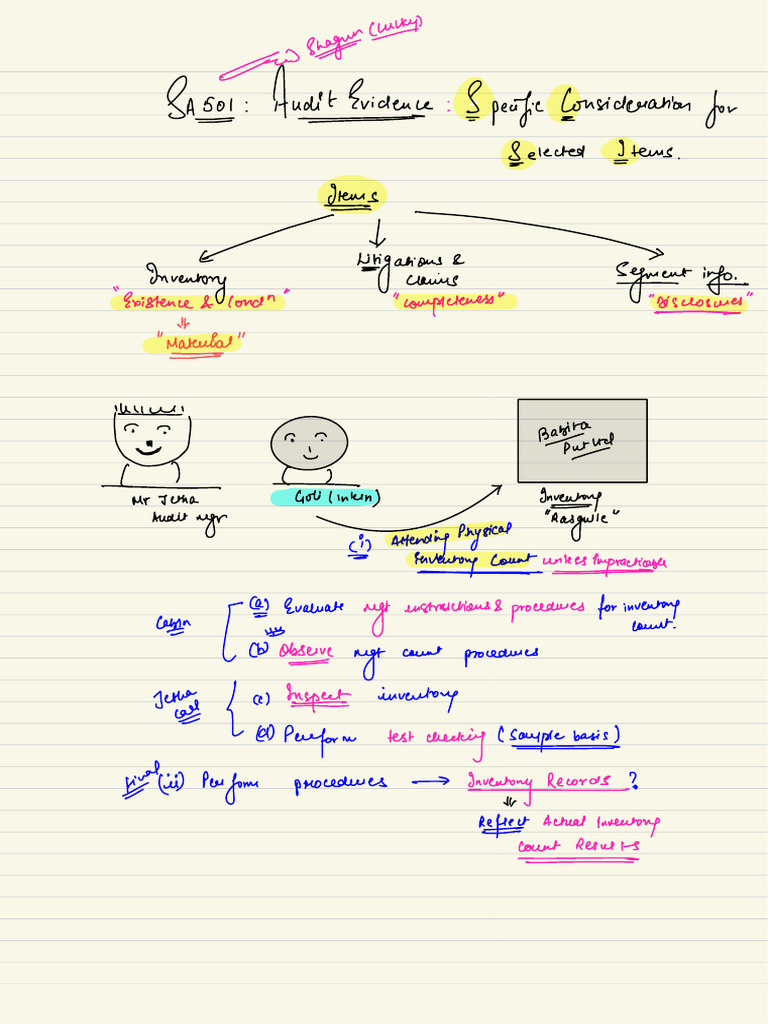 Shagun (lucky)
SA 501: Audit Evidence : Specific Consideration for
Selected Items.
Items
Inventory
"Existence & Condⁿ"
"Material"
Litigations &
Claims
"Completeness"
Segment info.
"Disclosures"
Mr Jetha
Audit mgr
Goli (Intern)
Babita
Pvt Ltd
Inventory
"Rasgulle"
(i) Attending Physical
Inventory Count unless Impracticable
Cabin
(a) Evaluate mgt instructions & procedures for inventory
count.
(b) Observe mgt count procedures
Jetha
Call
(c) Inspect inventory
(d) Perform test checking (Sample basis)
Final (ii) Perform procedures → Inventory Records ?
Reflect Actual Inventory
Count Results